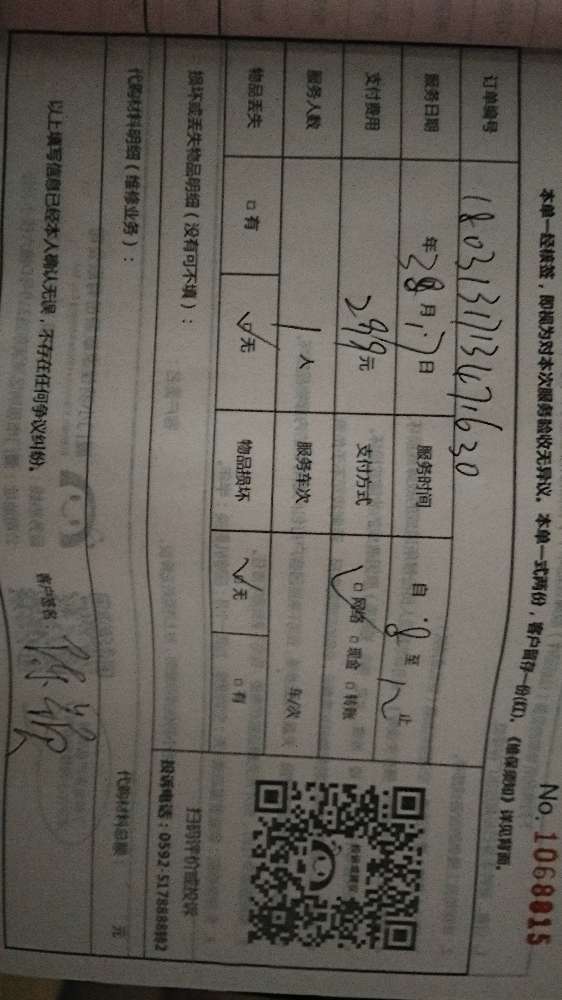 No. 1068015
本单一经核签，即视为对本次服务验收无异议。本单一式两份，客户留存一份(红)。《维保须知》详见背面。
订单编号 180313171347630
服务日期 年 38月17日 服务时间 自 8 至 12 止
支付费用 299元 支付方式 ☑网络 □现金 □转账
服务人数 1人 服务车次 车/次
物品丢失 □有 ☑无 物品损坏 ☑无 □有
损坏或丢失物品明细（没有可不填）：
代购材料明细（维修业务）：
代购材料总额： 元
以上填写信息已经本人确认无误，不存在任何争议纠纷。
客户签名
扫码评价或投诉